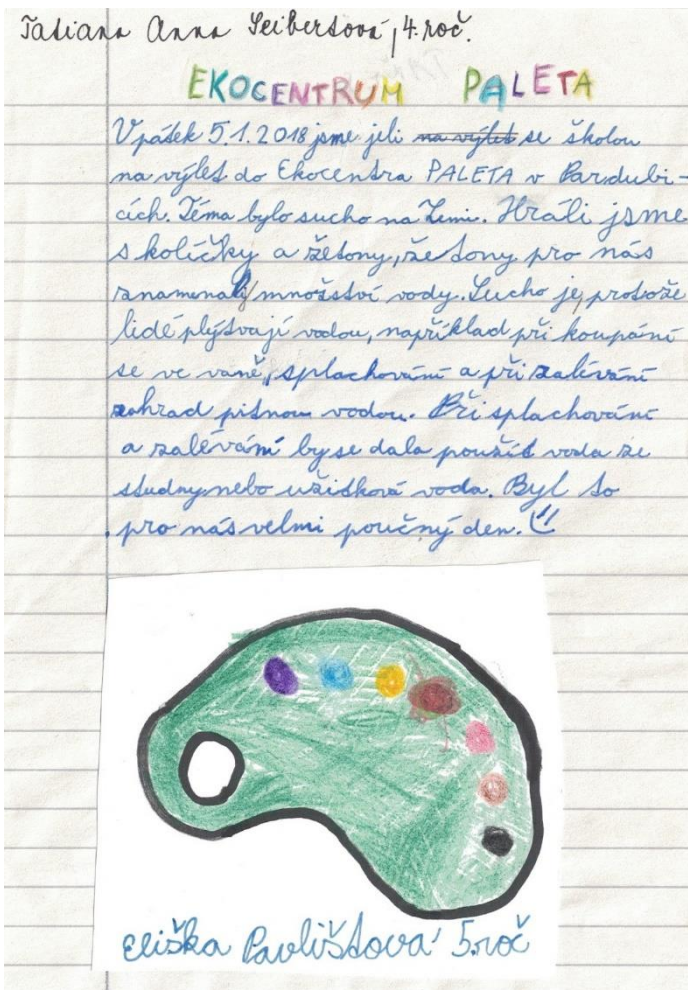 Tatiana Anna Seibertová, 4. roč.
EKOCENTRUM PALETA
V pátek 5.1.2018 jsme jeli na výlet se školou
na výlet do Ekocentra PALETA v Pardubi-
cích. Téma bylo sucho na Zemi. Hráli jsme
s kolíčky a žetony, žetony pro nás
znamenaly množství vody. Sucho je, protože
lidé plýtvají vodou, například při koupání
se ve vaně, splachování a při zalévání
zahrad pitnou vodou. Při splachování
a zalévání by se dala použít voda ze
studny nebo užitková voda. Byl to
pro nás velmi poučný den.
Eliška Pavlištová 5.roč